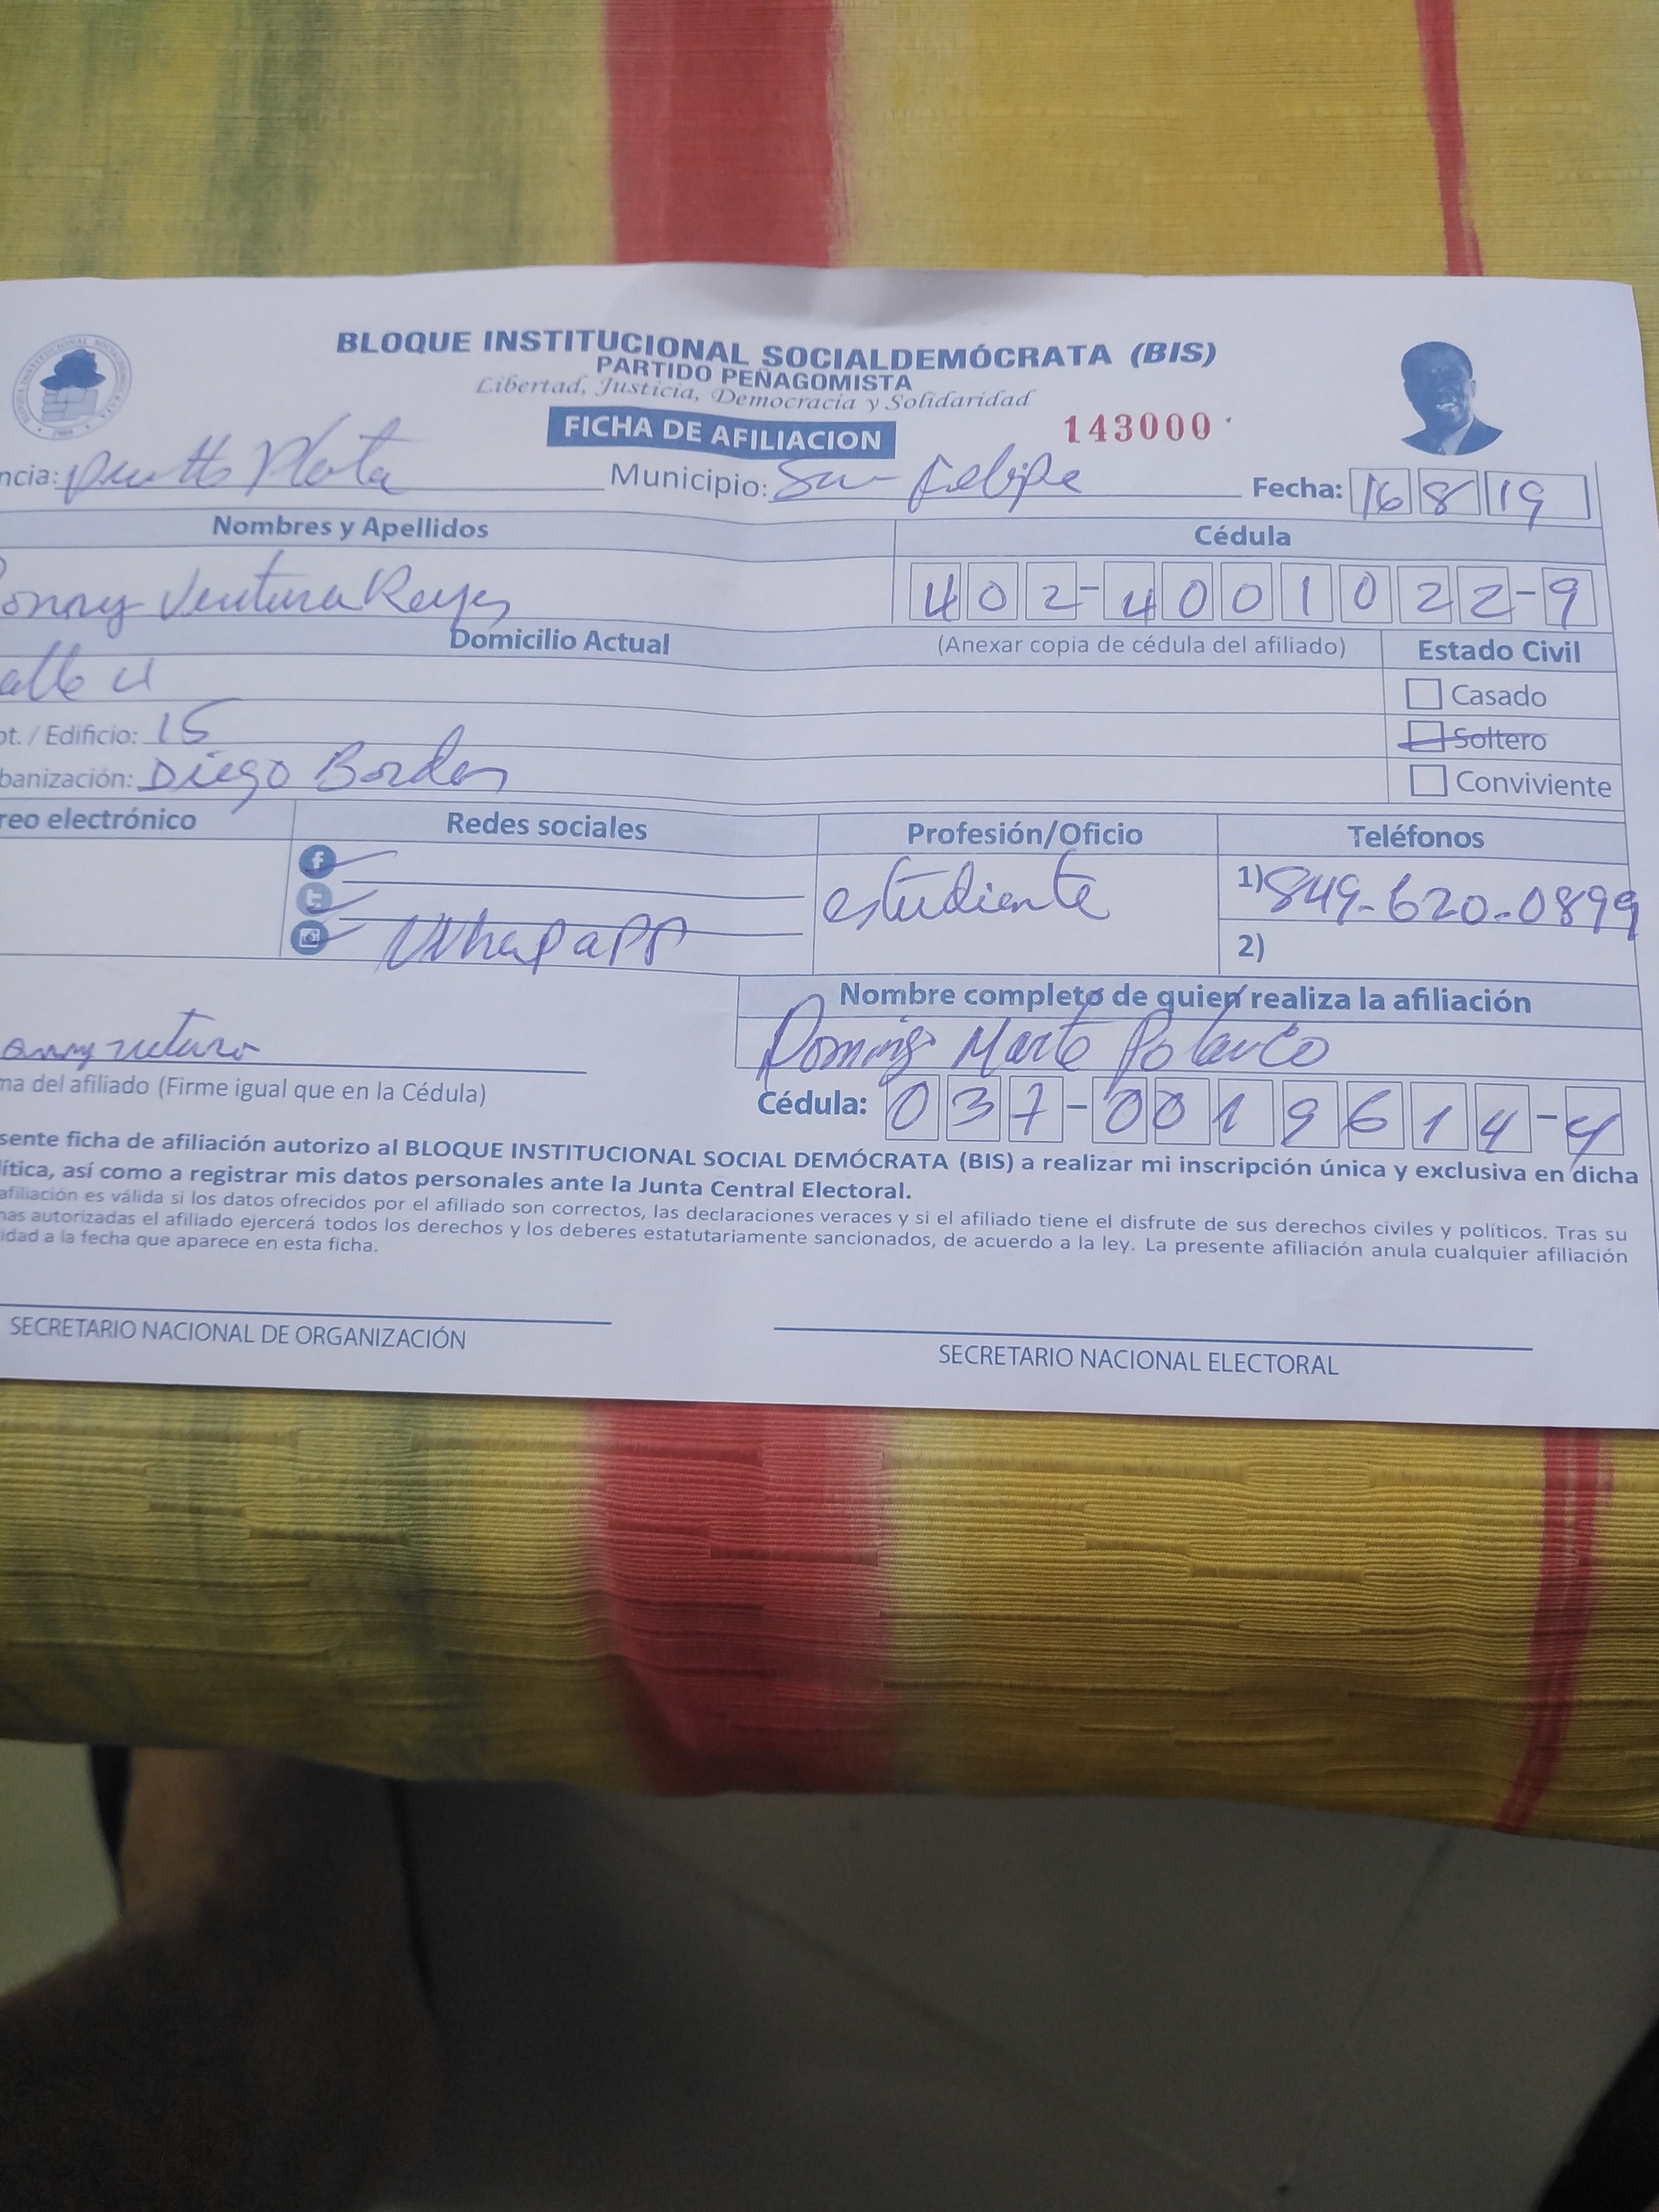 BLOQUE INSTITUCIONAL SOCIALDEMÓCRATA (BIS)
PARTIDO PEÑAGOMISTA
Libertad, Justicia, Democracia y Solidaridad
FICHA DE AFILIACION 143000
ncia: Plata Municipio: San Felipe Fecha: 16 8 19
Nombres y Apellidos Cédula
onny Ventura Reyes 402-4001022-9
Domicilio Actual (Anexar copia de cédula del afiliado) Estado Civil
Casado
ot. / Edificio: 15 Soltero
banización: Diego Conviviente
reo electrónico Redes sociales Profesión/Oficio Teléfonos
estudiente 1) 849-620-0899
Whapapp 2)
Nombre completo de quien realiza la afiliación
Marte Polanco
ma del afiliado (Firme igual que en la Cédula) Cédula: 037-0019614-4
sente ficha de afiliación autorizo al BLOQUE INSTITUCIONAL SOCIAL DEMÓCRATA (BIS) a realizar mi inscripción única y exclusiva en dicha
lítica, así como a registrar mis datos personales ante la Junta Central Electoral.
afiliación es válida si los datos ofrecidos por el afiliado son correctos, las declaraciones veraces y si el afiliado tiene el disfrute de sus derechos civiles y políticos. Tras su
nas autorizadas el afiliado ejercerá todos los derechos y los deberes estatutariamente sancionados, de acuerdo a la ley. La presente afiliación anula cualquier afiliación
idad a la fecha que aparece en esta ficha.
SECRETARIO NACIONAL DE ORGANIZACIÓN SECRETARIO NACIONAL ELECTORAL